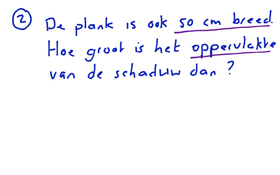 ② De plank is ook 50 cm breed.
Hoe groot is het oppervlakte
van de schaduw dan?